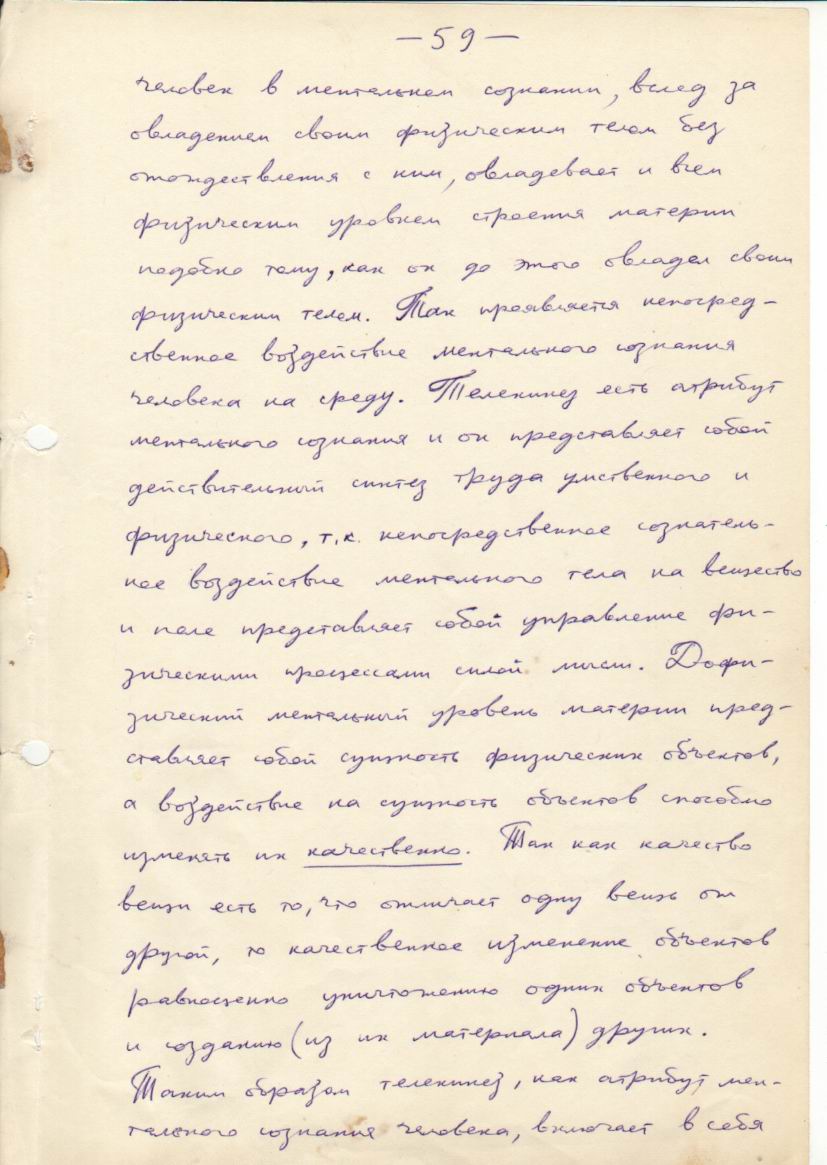 — 59 —
человек в ментальном сознании, вслед за
овладением своим физическим телом без
отождествления с ним, овладевает и всем
физическим уровнем строения материи
подобно тому, как он до этого овладел своим
физическим телом. Так проявляется непосред-
ственное воздействие ментального сознания
человека на среду. Телекинез есть атрибут
ментального сознания и он представляет собой
действительный синтез труда умственного и
физического, т.к. непосредственное сознатель-
ное воздействие ментального тела на вещество
и поле представляет собой управление фи-
зическими процессами силой мысли. Дофи-
зический ментальный уровень материи пред-
ставляет собой сущность физических объектов,
а воздействие на сущность объектов способно
изменять их качественно. Так как качество
вещи есть то, что отличает одну вещь от
другой, то качественное изменение объектов
равноценно уничтожению одних объектов
и созданию (из их материала) других.
Таким образом телекинез, как атрибут мен-
тального сознания человека, включает в себя